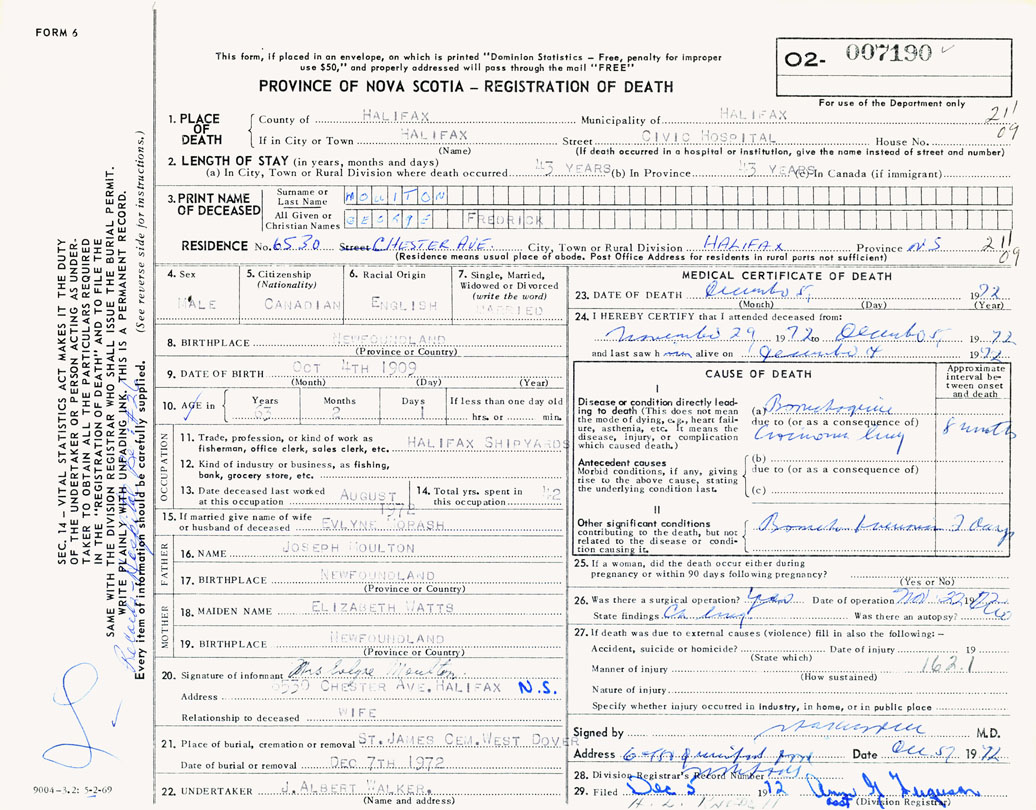 FORM 6
This form, if placed in an envelope, on which is printed "Dominion Statistics – Free, penalty for improper
use $50," and properly addressed will pass through the mail "FREE"
PROVINCE OF NOVA SCOTIA – REGISTRATION OF DEATH
O2- 007190
For use of the Department only
211
09
1. PLACE OF DEATH
County of HALIFAX Municipality of HALIFAX
If in City or Town HALIFAX Street CIVIC HOSPITAL House No.
(Name) (If death occurred in a hospital or institution, give the name instead of street and number)
2. LENGTH OF STAY (in years, months and days)
(a) In City, Town or Rural Division where death occurred 43 YEARS (b) In Province 43 YEARS (c) In Canada (if immigrant)
3. PRINT NAME OF DECEASED
Surname or Last Name MOULTON
All Given or Christian Names GEORGE FREDRICK
RESIDENCE No. 6530 Street CHESTER AVE. City, Town or Rural Division HALIFAX Province N.S 211
09
(Residence means usual place of abode. Post Office Address for residents in rural parts not sufficient)
4. Sex
MALE
5. Citizenship
(Nationality)
CANADIAN
6. Racial Origin
ENGLISH
7. Single, Married,
Widowed or Divorced
(write the word)
MARRIED
8. BIRTHPLACE NEWFOUNDLAND
(Province or Country)
9. DATE OF BIRTH OCT 4TH 1909
(Month) (Day) (Year)
10. AGE in Years 63 Months 2 Days 1 If less than one day old
hrs. or min.
OCCUPATION
11. Trade, profession, or kind of work as
fisherman, office clerk, sales clerk, etc. HALIFAX SHIPYARDS
12. Kind of industry or business, as fishing,
bank, grocery store, etc.
13. Date deceased last worked
at this occupation AUGUST 1972
14. Total yrs. spent in
this occupation 42
15. If married give name of wife
or husband of deceased EVLYNE
FATHER
16. NAME JOSEPH MOULTON
17. BIRTHPLACE NEWFOUNDLAND
(Province or Country)
MOTHER
18. MAIDEN NAME ELIZABETH WATTS
19. BIRTHPLACE NEWFOUNDLAND
(Province or Country)
20. Signature of informant Mrs Moulton
Address 6530 CHESTER AVE. HALIFAX N.S.
Relationship to deceased WIFE
21. Place of burial, cremation or removal ST. JAMES CEM. WEST DOVER
Date of burial or removal DEC 7TH 1972
22. UNDERTAKER J. ALBERT WALKER.
(Name and address)
MEDICAL CERTIFICATE OF DEATH
23. DATE OF DEATH December 5, 1972
(Month) (Day) (Year)
24. I HEREBY CERTIFY that I attended deceased from:
November 29 1972 to December 5, 1972
and last saw him alive on December 4 1972
CAUSE OF DEATH
Approximate
interval be-
tween onset
and death
I
Disease or condition directly lead-
ing to death (This does not mean
the mode of dying, e.g., heart fail-
ure, asthenia, etc. It means the
disease, injury, or complication
which caused death.)
(a) Bronchogenic
due to (or as a consequence of)
Carcinoma lung 8 months
Antecedent causes
Morbid conditions, if any, giving
rise to the above cause, stating
the underlying condition last.
(b)
due to (or as a consequence of)
(c)
II
Other significant conditions
contributing to the death, but not
related to the disease or condi-
tion causing it.
Broncho Pneumonia days
25. If a woman, did the death occur either during
pregnancy or within 90 days following pregnancy?
(Yes or No)
26. Was there a surgical operation? Yes Date of operation Nov 22 1972
State findings Ca lung Was there an autopsy? No
27. If death was due to external causes (violence) fill in also the following:–
Accident, suicide or homicide? Date of injury 19
(State which)
Manner of injury 162.1
(How sustained)
Nature of injury
Specify whether injury occurred in industry, in home, or in public place
Signed by M.D.
Address Date Dec 5/ 1972
28. Division Registrar's Record Number
29. Filed Dec 5 1972 Ann G Ferguson
(Division Registrar)
SEC. 14 – VITAL STATISTICS ACT MAKES IT THE DUTY
OF THE UNDERTAKER OR PERSON ACTING AS UNDER-
TAKER TO OBTAIN ALL THE PARTICULARS REQUIRED
IN THE "REGISTRATION OF DEATH" AND TO FILE THE
SAME WITH THE DIVISION REGISTRAR WHO SHALL ISSUE THE BURIAL PERMIT.
WRITE PLAINLY WITH UNFADING INK. THIS IS A PERMANENT RECORD.
Every item of information should be carefully supplied. (See reverse side for instructions.)
9004-3.2: 5-2-69